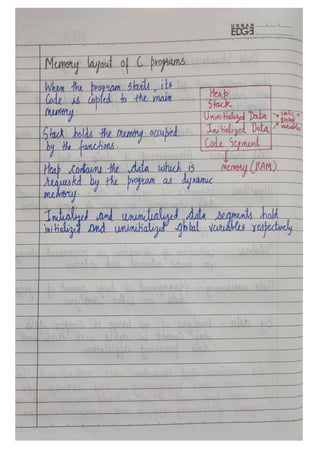 URBAN
EDGE
Memory layout of C programs
When the program starts, its
Code is copied to the main
memory.
Heap
Stack
Uninitialized Data
Initialized Data
Code Segment
static +
global
variables
memory (RAM)
Stack holds the memory occupied
by the functions.
Heap contains the data which is
requested by the program as dynamic
memory.
Initialized and uninitialized data segments hold
initialized and uninitialized global variables respectively